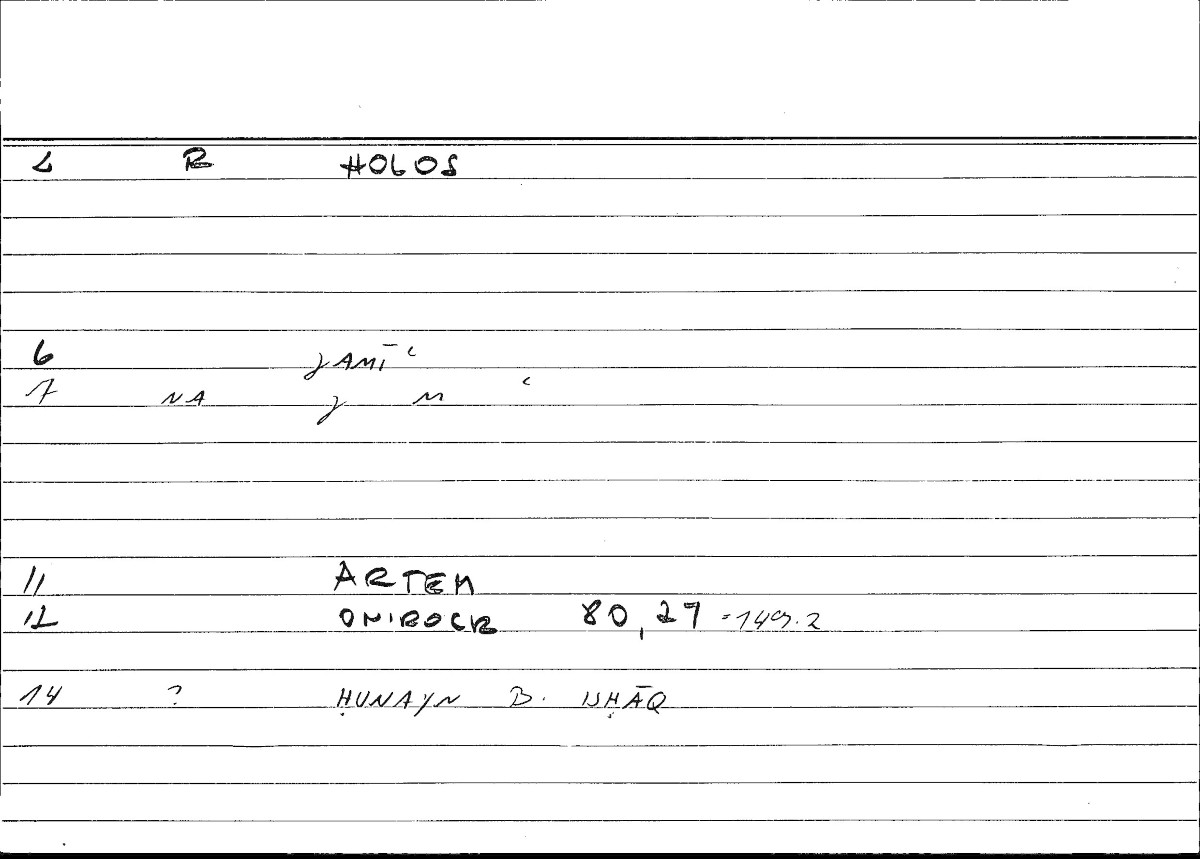 L R HOLOS
6 JAMĪʿ
7 NA J M ʿ
11 ARTEM
12 ONIROCR 80,27 =149.2
14 ? ḤUNAYN B. ISḤĀQ